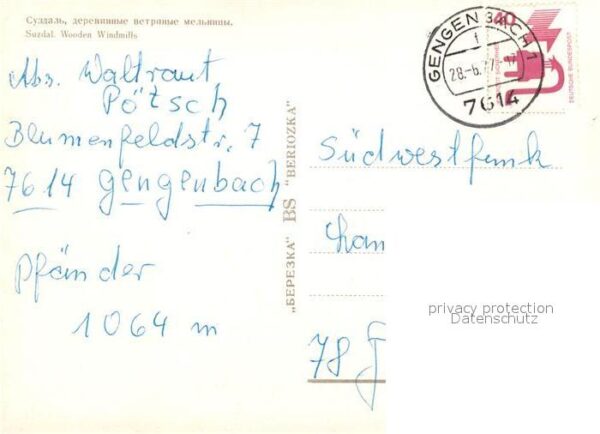 Суздаль, деревянные ветряные мельницы.
Suzdal. Wooden Windmills
Abs. Waltraut
Pötsch
Blumenfeldstr. 7
7614 Gengenbach
Pfänder
1064 m
"БЕРЕЗКА" BS "BERIOZKA"
GENGENBACH 1
28.-6.
7614
40
DEUTSCHE BUNDESPOST
Südwestfunk
78
privacy protection
Datenschutz